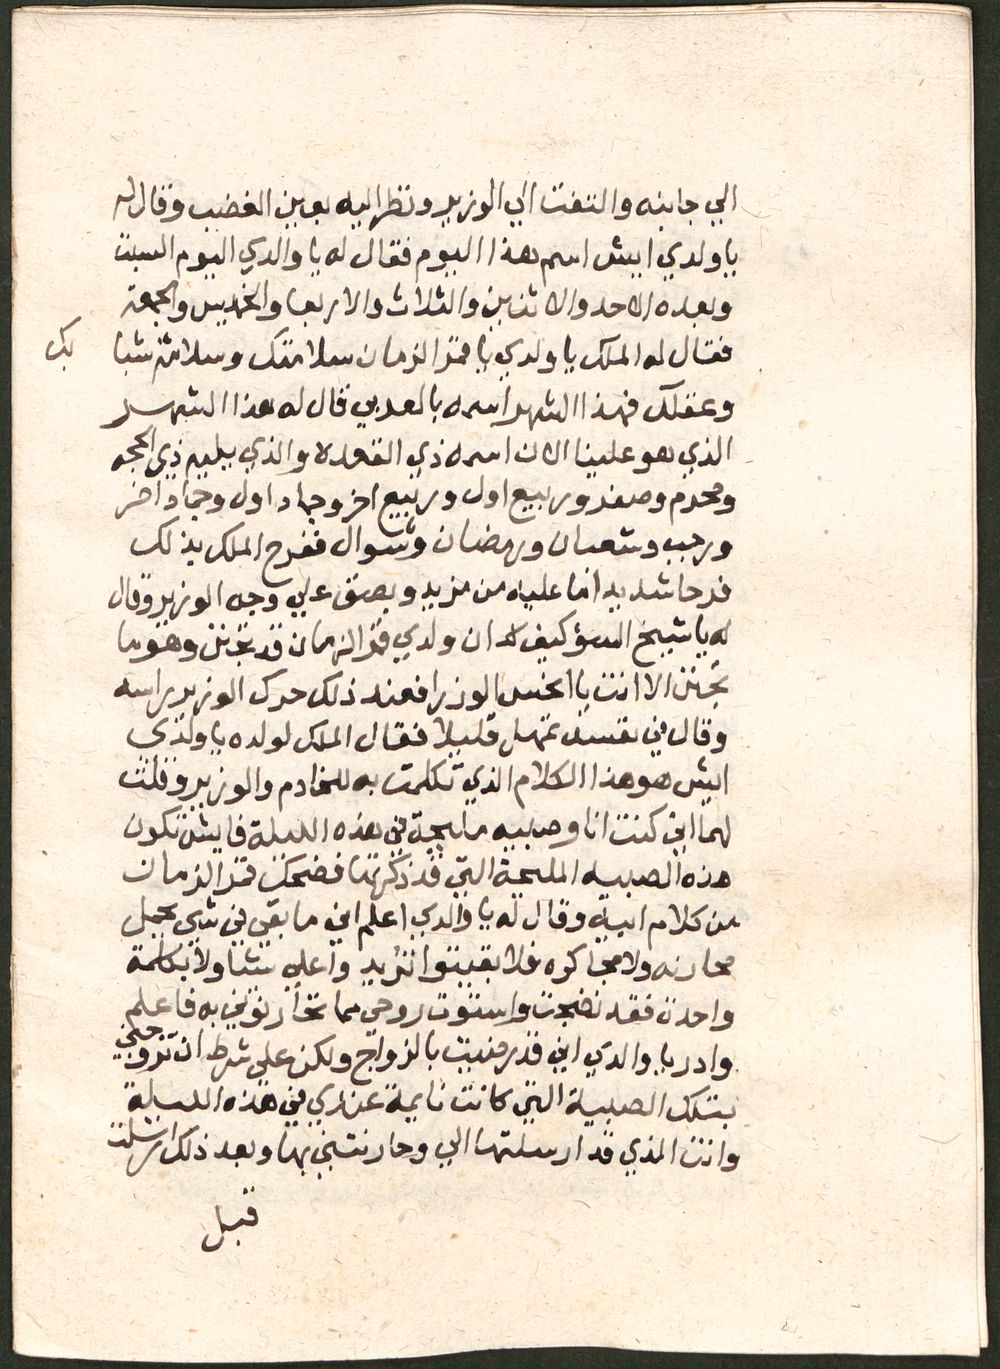 الي جانبه والتفت الي الوزير ونظر اليه بعين الغضب وقال له
يا ولدي ايش اسم هذا اليوم فقال له يا والدي اليوم السبت
وبعده الاحد والاثنين والثلاث والاربعا والخميس والجمعة
فقال له الملك يا ولدي يا قمر الزمان سلامتك وسلامة شبا بك
وعقلك فهذا الشهر اسمه بالعربي قال له هذا الشهر
الذي هو علينا الان اسمه ذي القعده والذي يليه ذي الحجه
ومحرم وصفر وربيع اول وربيع اخر وجماد اول وجماد اخر
ورجب وشعبان ورمضان وشوال ففرح الملك بذلك
فرحا شديدا ما عليه من مزيد وبصق علي وجه الوزير وقال
له يا شيخ السؤ كيف ان ولدي قمر الزمان قد تجنن وهو ما
تجنن الا انت يا انحس الوزرا فعند ذلك حرك الوزير براسه
وقال في نفسه تمهل قليلا فقال الملك لولده يا ولدي
ايش هو هذا الكلام الذي تكلمت به للخادم والوزير وقلت
لهما اني كنت انا وصبيه مليحة في هذه الليلة فايش تكون
هذه الصبيه المليحة التي قد ذكرتها فضحك قمر الزمان
من كلام ابيه وقال له يا والدي اعلم اني ما بقي في شي يحمل
محارنه ولا محاكره فلا بقيتوا تزيدوا عليه شيا ولا بكلمة
واحدة فقد نضجت واستوت روحي مما تحارنوني به فاعلم
وادر يا والدي اني قد رضيت بالزواج ولكن علي شرط ان تزوجني
بتلك الصبية التي كانت نايمة عندي في هذه الليلة
وانت الذي قد ارسلتها الي وحارنتني بها وبعد ذلك ارسلت
قبل